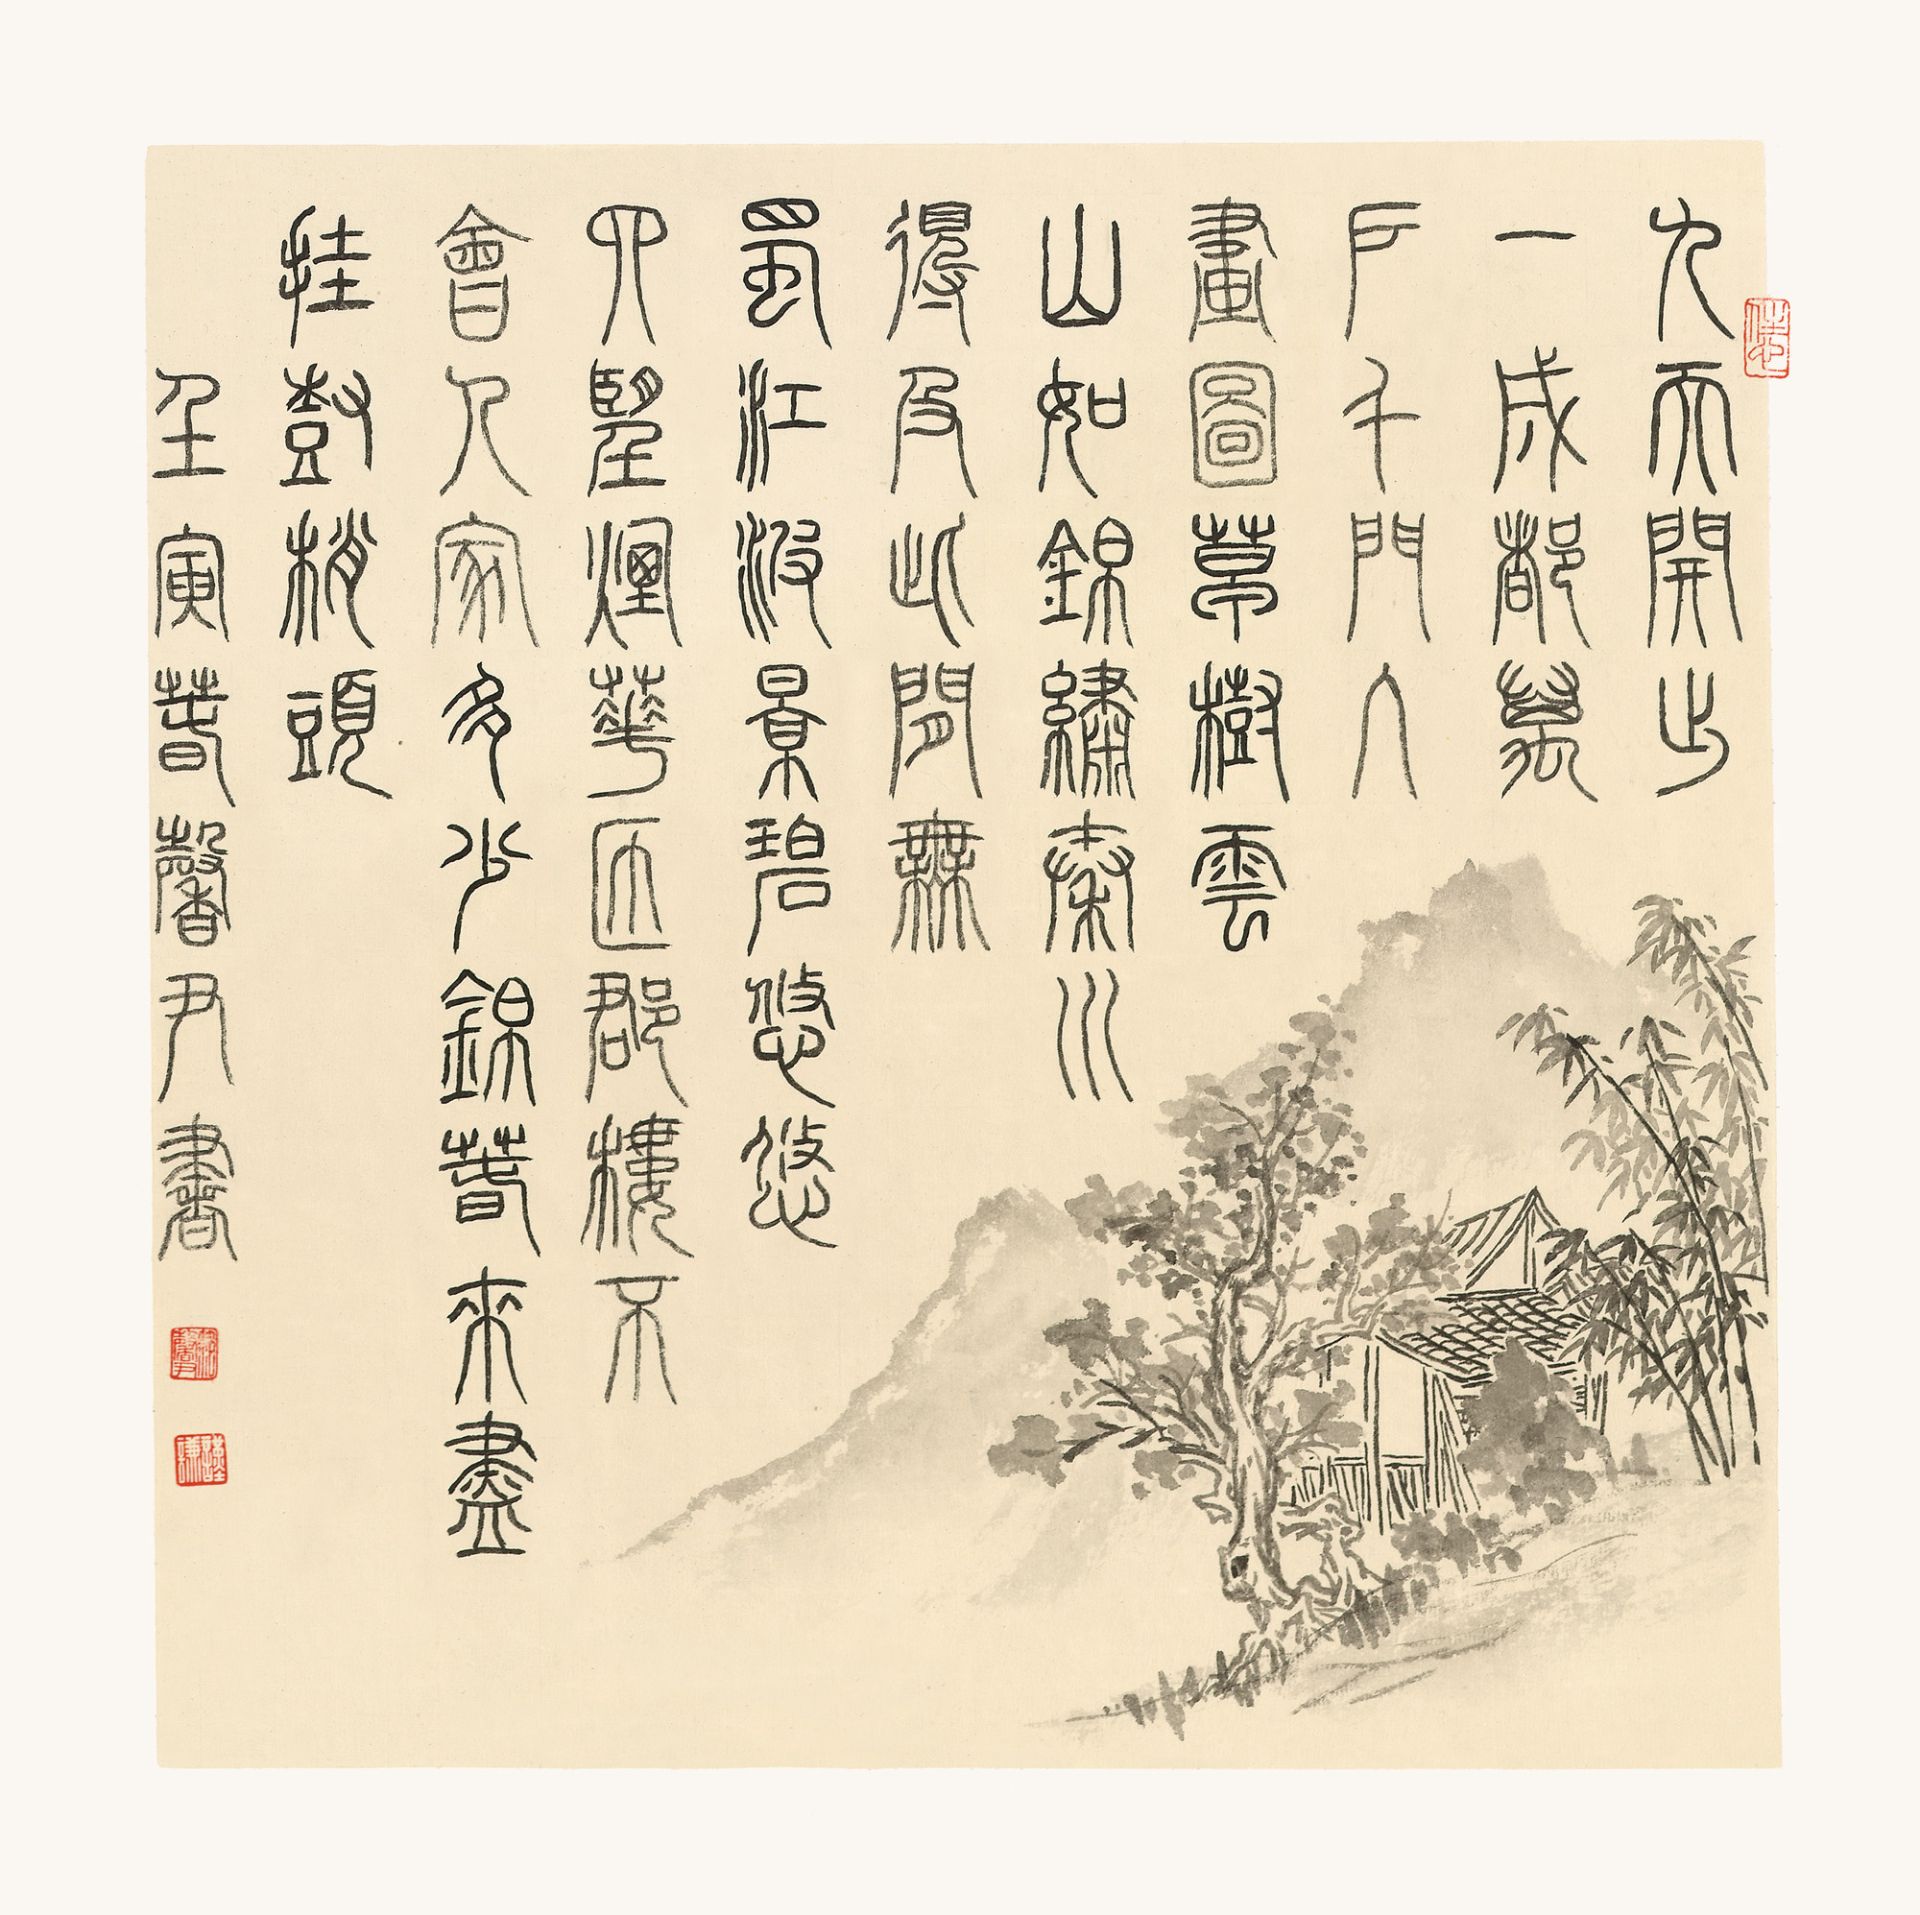 九天開出
一成都萬
戶千門入
畫圖草樹雲
山如錦繡秦川
得及此間無
蜀江波景碧悠悠
四望煙華匝郡樓不
會人家多少錦春來盡
挂樹梢頭
壬寅春馨尹書